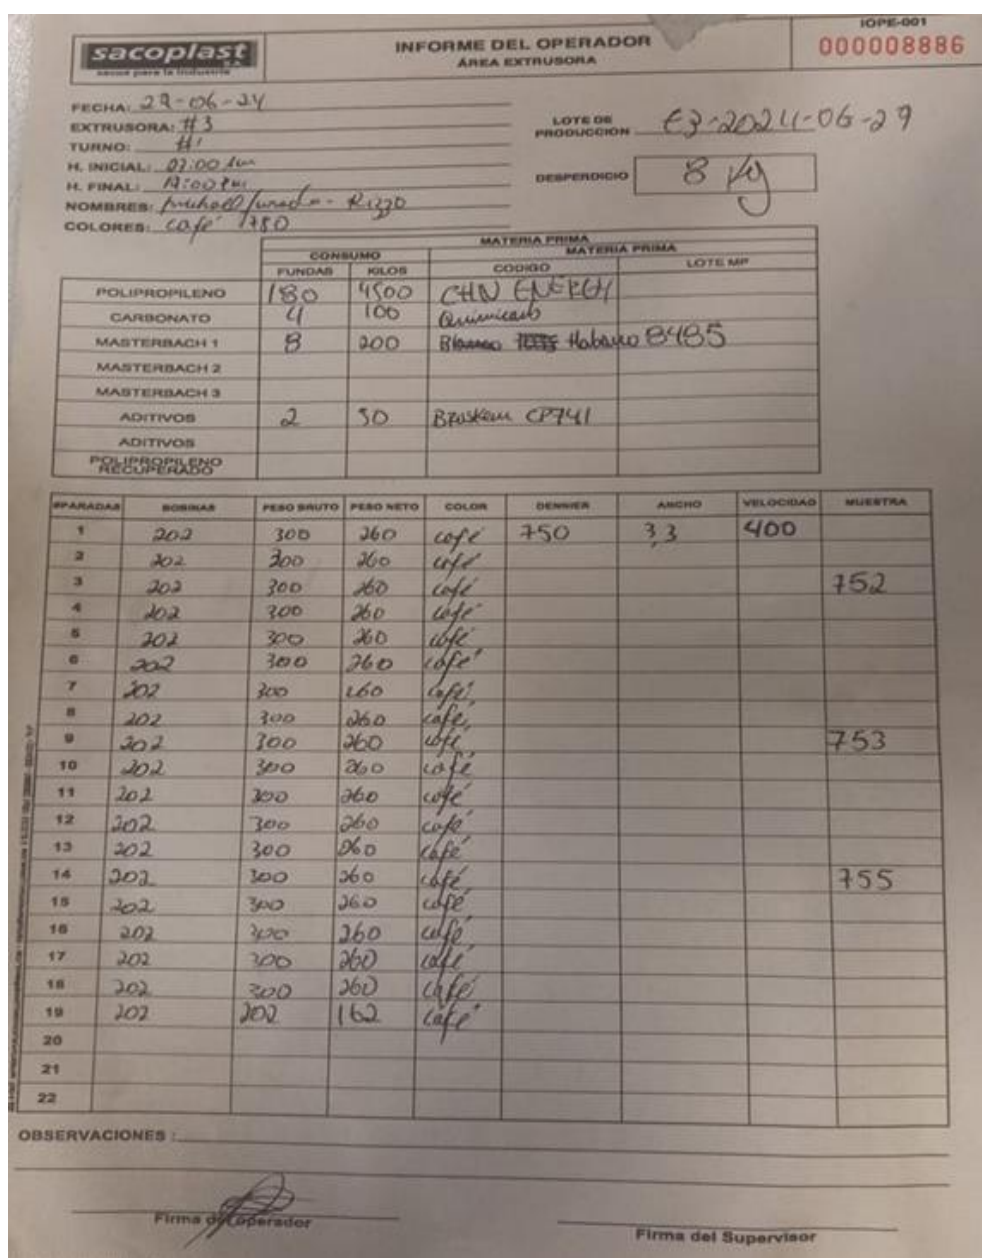 sacoplast S.A.
sacos para la industria
INFORME DEL OPERADOR
ÁREA EXTRUSORA
IOPE-001
000008886
FECHA: 29-06-24
EXTRUSORA: #3
TURNO: #1
H. INICIAL: 07:00 Am
H. FINAL: 19:00 Pm
NOMBRES: Michael Jurado - Rizzo
COLORES: café 1780
LOTE DE PRODUCCION E3-2024-06-29
DESPERDICIO 8 Kg
MATERIA PRIMA
CONSUMO MATERIA PRIMA
FUNDAS KILOS CODIGO LOTE MP
POLIPROPILENO 180 4500 CHN ENERGY
CARBONATO 4 100 Quimicarb
MASTERBACH 1 8 200 Habano 8485
MASTERBACH 2
MASTERBACH 3
ADITIVOS 2 50 Braskem CP741
ADITIVOS
POLIPROPILENO RECUPERADO
#PARADAS BOBINAS PESO BRUTO PESO NETO COLOR DENNIER ANCHO VELOCIDAD MUESTRA
1 202 300 260 café 750 3,3 400
2 202 300 260 café
3 202 300 260 café 752
4 202 300 260 café
5 202 300 260 café
6 202 300 260 café
7 202 300 260 café
8 202 300 260 café
9 202 300 260 café 753
10 202 300 260 café
11 202 300 260 café
12 202 300 260 café
13 202 300 260 café
14 202 300 260 café 755
15 202 300 260 café
16 202 300 260 café
17 202 300 260 café
18 202 300 260 café
19 202 202 162 café
20
21
22
OBSERVACIONES :
Firma del operador
Firma del Supervisor